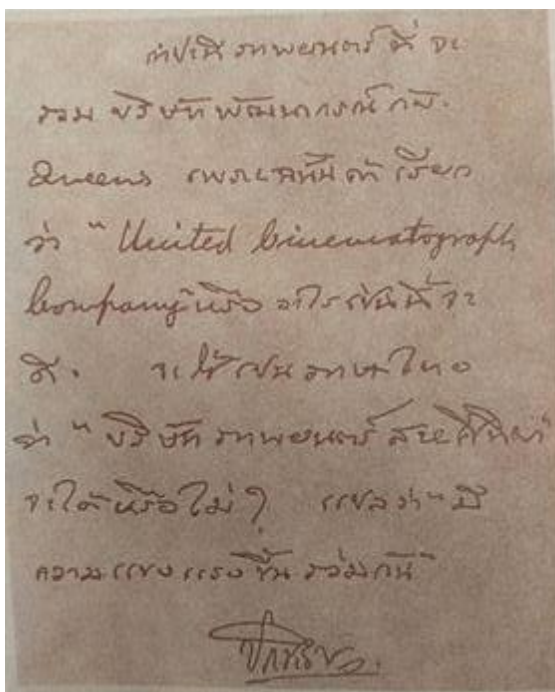 ภาพยนตร์ ที่ จะ
รวม บริษัทพัฒนากรณ์ กับ
Queens เพราะฉะนั้น ถ้า เรียก
ว่า " United Cinematograph
Company" หรือ อะไร เช่นนี้ จะ
ดี. จะใช้ เป็น ภาษาไทย
ว่า " บริษัท ภาพยนตร์
จะได้ หรือ ไม่ ? แปลว่า " มี
ความ แข็ง แรง ขึ้น ร่วมกัน "